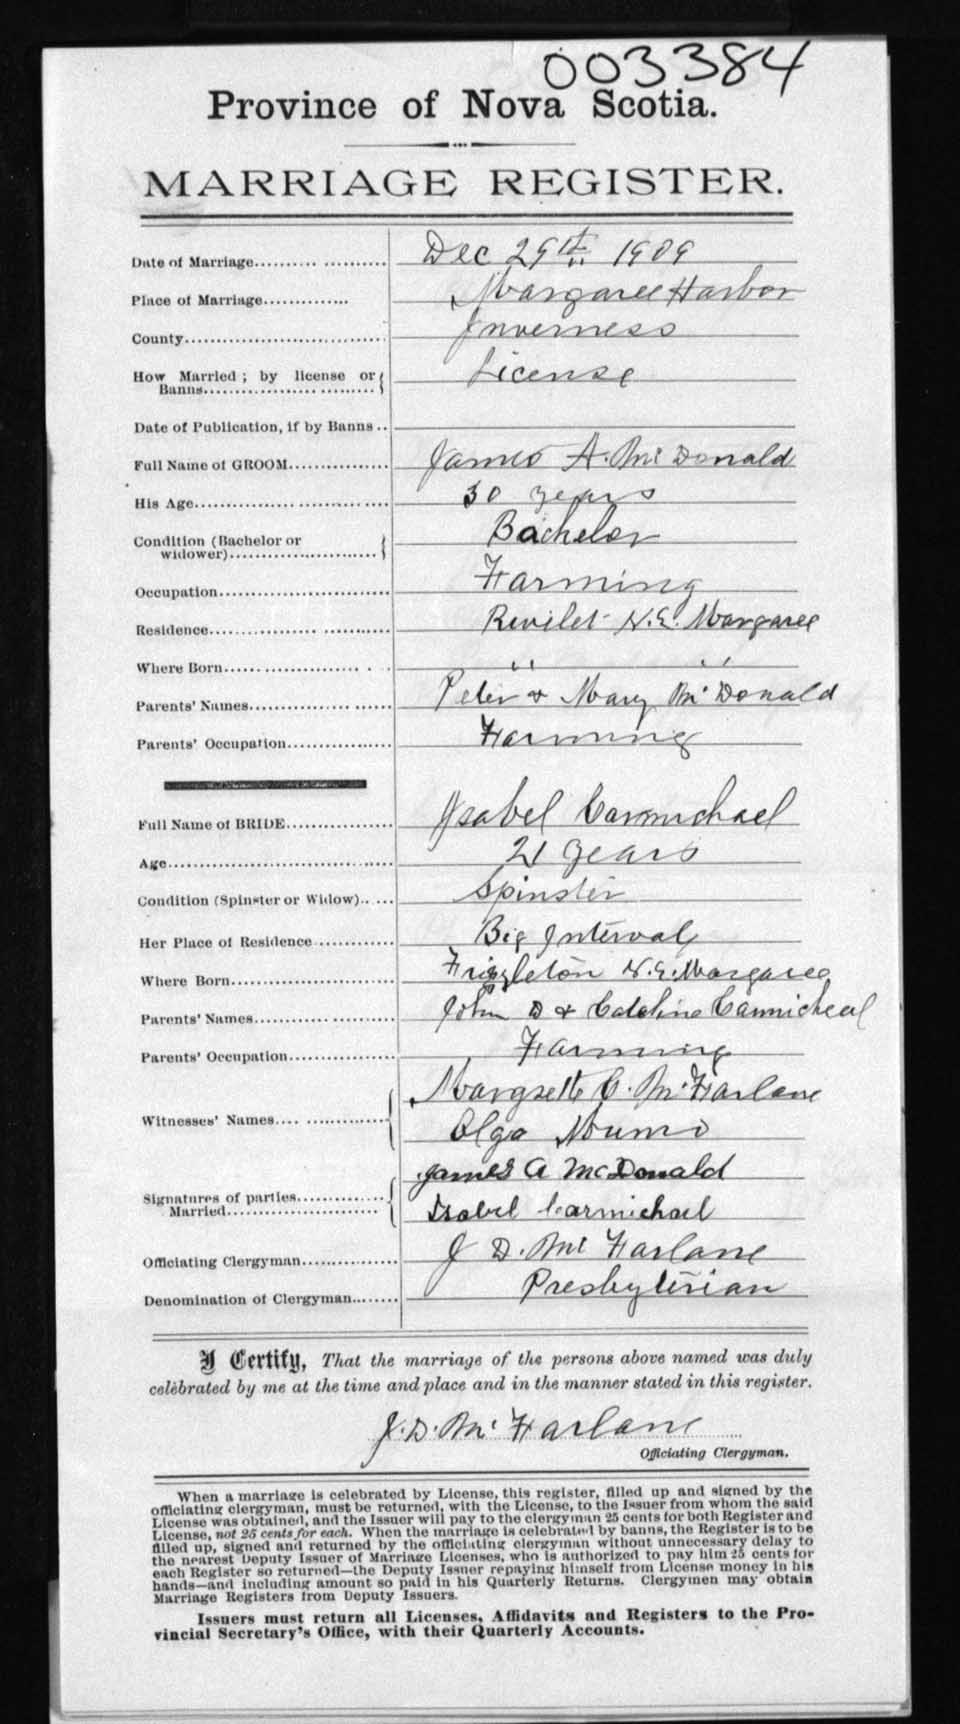 003384
Province of Nova Scotia.
MARRIAGE REGISTER.
Date of Marriage.......... Dec 29th 1909
Place of Marriage.............. Margaree Harbor
County................................ Inverness
How Married; by license or License
Banns..............................
Date of Publication, if by Banns..
Full Name of GROOM................ James A. Mc Donald
His Age............................... 30 years
Condition (Bachelor or Bachelor
widower)......................
Occupation........................... Farming
Residence........................... N.E. Margaree
Where Born........................ " "
Parents' Names.................... Peter & Mary Mc Donald
Parents' Occupation................ Farming
Full Name of BRIDE................ Isabel Carmichael
Age................................... 21 years
Condition (Spinster or Widow)..... Spinster
Her Place of Residence............ Big Interval
Where Born........................ N.E. Margaree
Parents' Names.................... John D & Carmicheal
Parents' Occupation................ Farming
Margrette C. McFarlane
Witnesses' Names.................. Olga
James A McDonald
Signatures of parties..............
Married...................... Isabel Carmichael
Officiating Clergyman.............. J D. Mc Farlane
Denomination of Clergyman........ Presbyterian
I Certify, That the marriage of the persons above named was duly
celebrated by me at the time and place and in the manner stated in this register.
J. D. Mc Farlane
Officiating Clergyman.
When a marriage is celebrated by License, this register, filled up and signed by the
officiating clergyman, must be returned, with the License, to the Issuer from whom the said
License was obtained, and the Issuer will pay to the clergyman 25 cents for both Register and
License, not 25 cents for each. When the marriage is celebrated by banns, the Register is to be
filled up, signed and returned by the officiating clergyman without unnecessary delay to
the nearest Deputy Issuer of Marriage Licenses, who is authorized to pay him 25 cents for
each Register so returned—the Deputy Issuer repaying himself from License money in his
hands—and including amount so paid in his Quarterly Returns. Clergymen may obtain
Marriage Registers from Deputy Issuers.
Issuers must return all Licenses, Affidavits and Registers to the Pro-
vincial Secretary's Office, with their Quarterly Accounts.